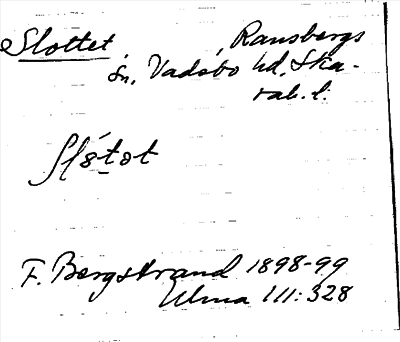 Slottet, Ransbergs
sn, Vadsbo hd, Ska-
rab. l.
Slo´tət
F. Bergstrand 1898-99
Ulma 111:328